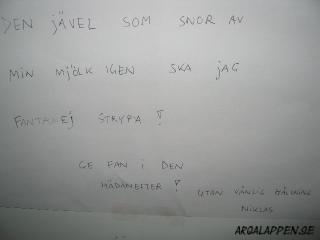 DEN jÄVEL SOM SNOR AV
MIN MjÖLK IGEN SKA jAG
FANTAMEj STRYPA!
GE FAN i DEN
HÄDANEFTER!
UTAN VÄNLIG HÄLSNING
NIKLAS
ARGALAPPEN.SE